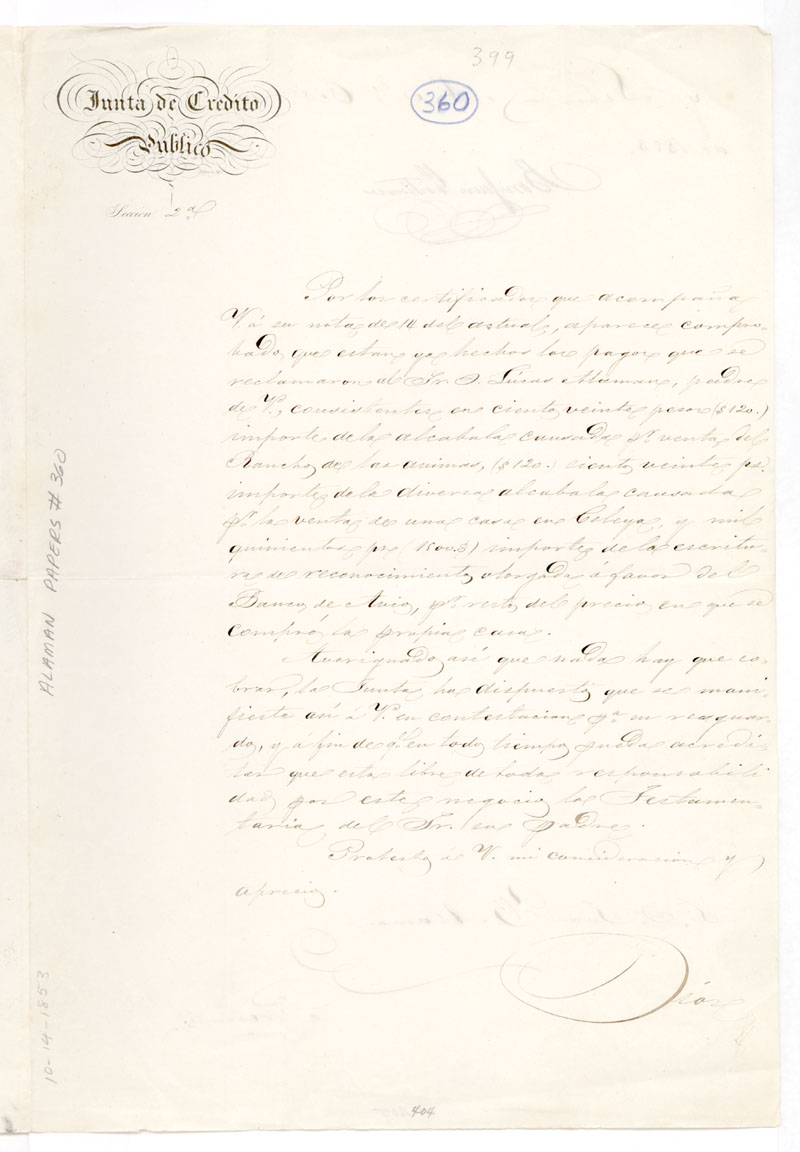 399
360
Junta de Credito
Publico
Seccion 2ª
Por los certificados que acompaña
V. á su nota de 14 del actual, aparece compro-
bado, que estan ya hechos los pagos que se
reclamaron al Sr. D. Lúcas Alaman, padre
de V., consistentes en ciento veinte pesos ($120.)
importe de la alcabala causada pr. venta del
Rancho de las animas, ($120.) ciento veinte ps.
importe de la diversa alcabala causada
pr. la venta de una casa en Celaya, y mil
quinientos ps (1500.$) importe de la escritu-
ra de reconocimiento otorgada á favor del
Banco de Avio, pr. resto del precio en que se
compró la propia casa.
Averiguado así que nada hay que co-
brar, la Junta ha dispuesto que se mani-
fieste así á V. en contestacion pa. su resguar-
do, y á fin de qe. en todo tiempo pueda acredi-
tar que esta libre de toda responsabili
dad por este negocio la Testamen-
taria del Sr. su padre.
Protesto á V. mi consideracion y
aprecio.
Dios
ALAMAN PAPERS # 360
10-14-1853
404